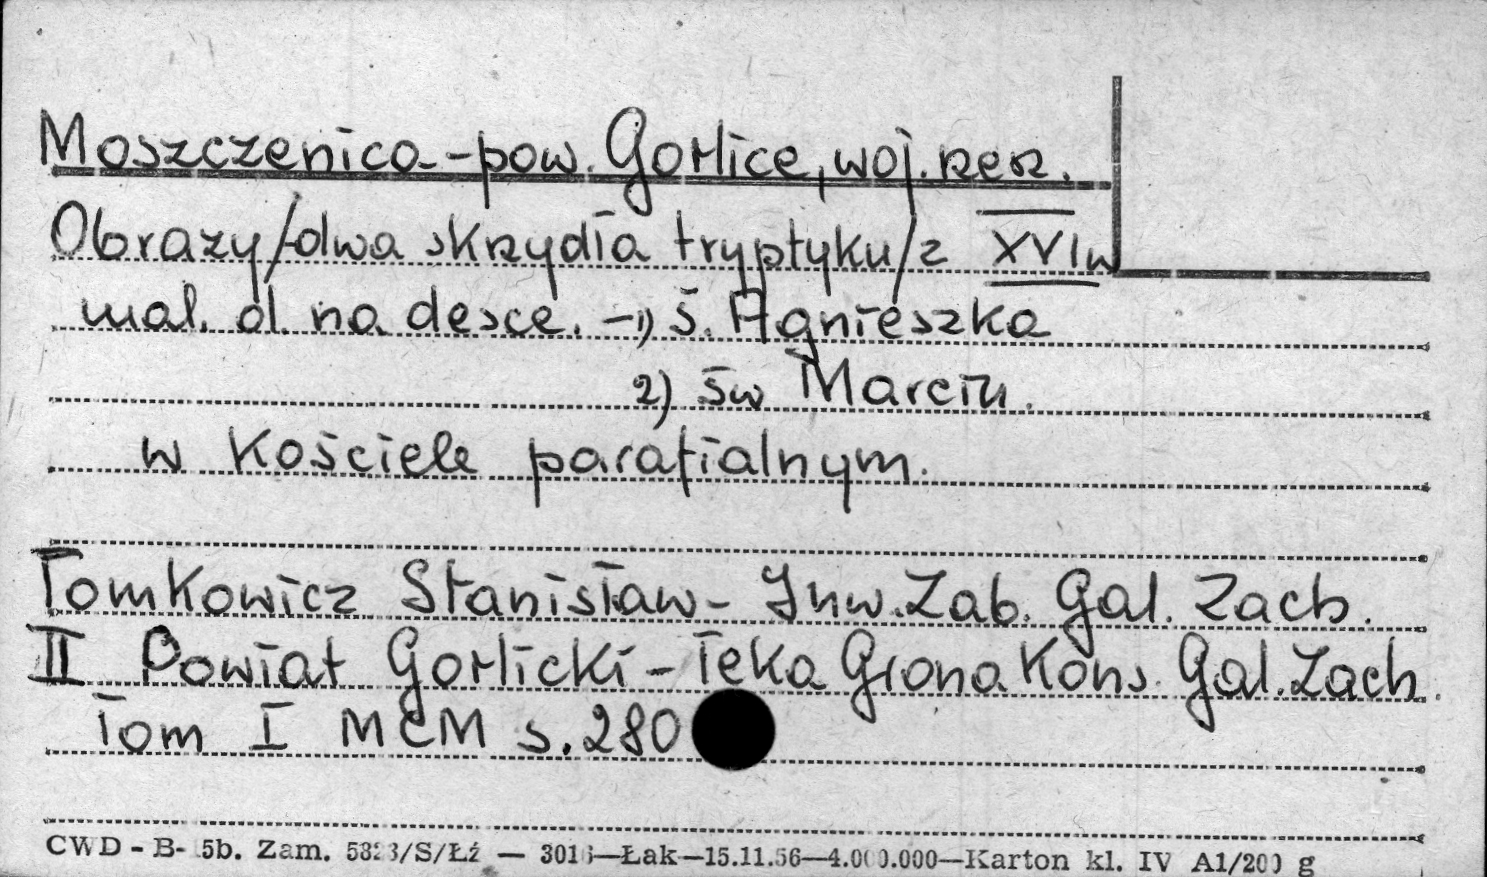 Moszczenica - pow. Gorlice, woj. rzesz.
Obrazy /dwa skrzydła tryptyku/ z XVI w
mal. ol. na desce. - 1) ś. Agnieszka
2) św Marcin.
w Kościele parafialnym.
Tomkowicz Stanisław - Inw. Zab. Gal. Zach.
II Powiat Gorlicki - Teka Grona Kons. Gal. Zach.
Tom I MCM s. 280
CWD - B- 5b. Zam. 5323/S/Łź — 3016—Łak—15.11.56—4.000.000—Karton kl. IV A1/200 g